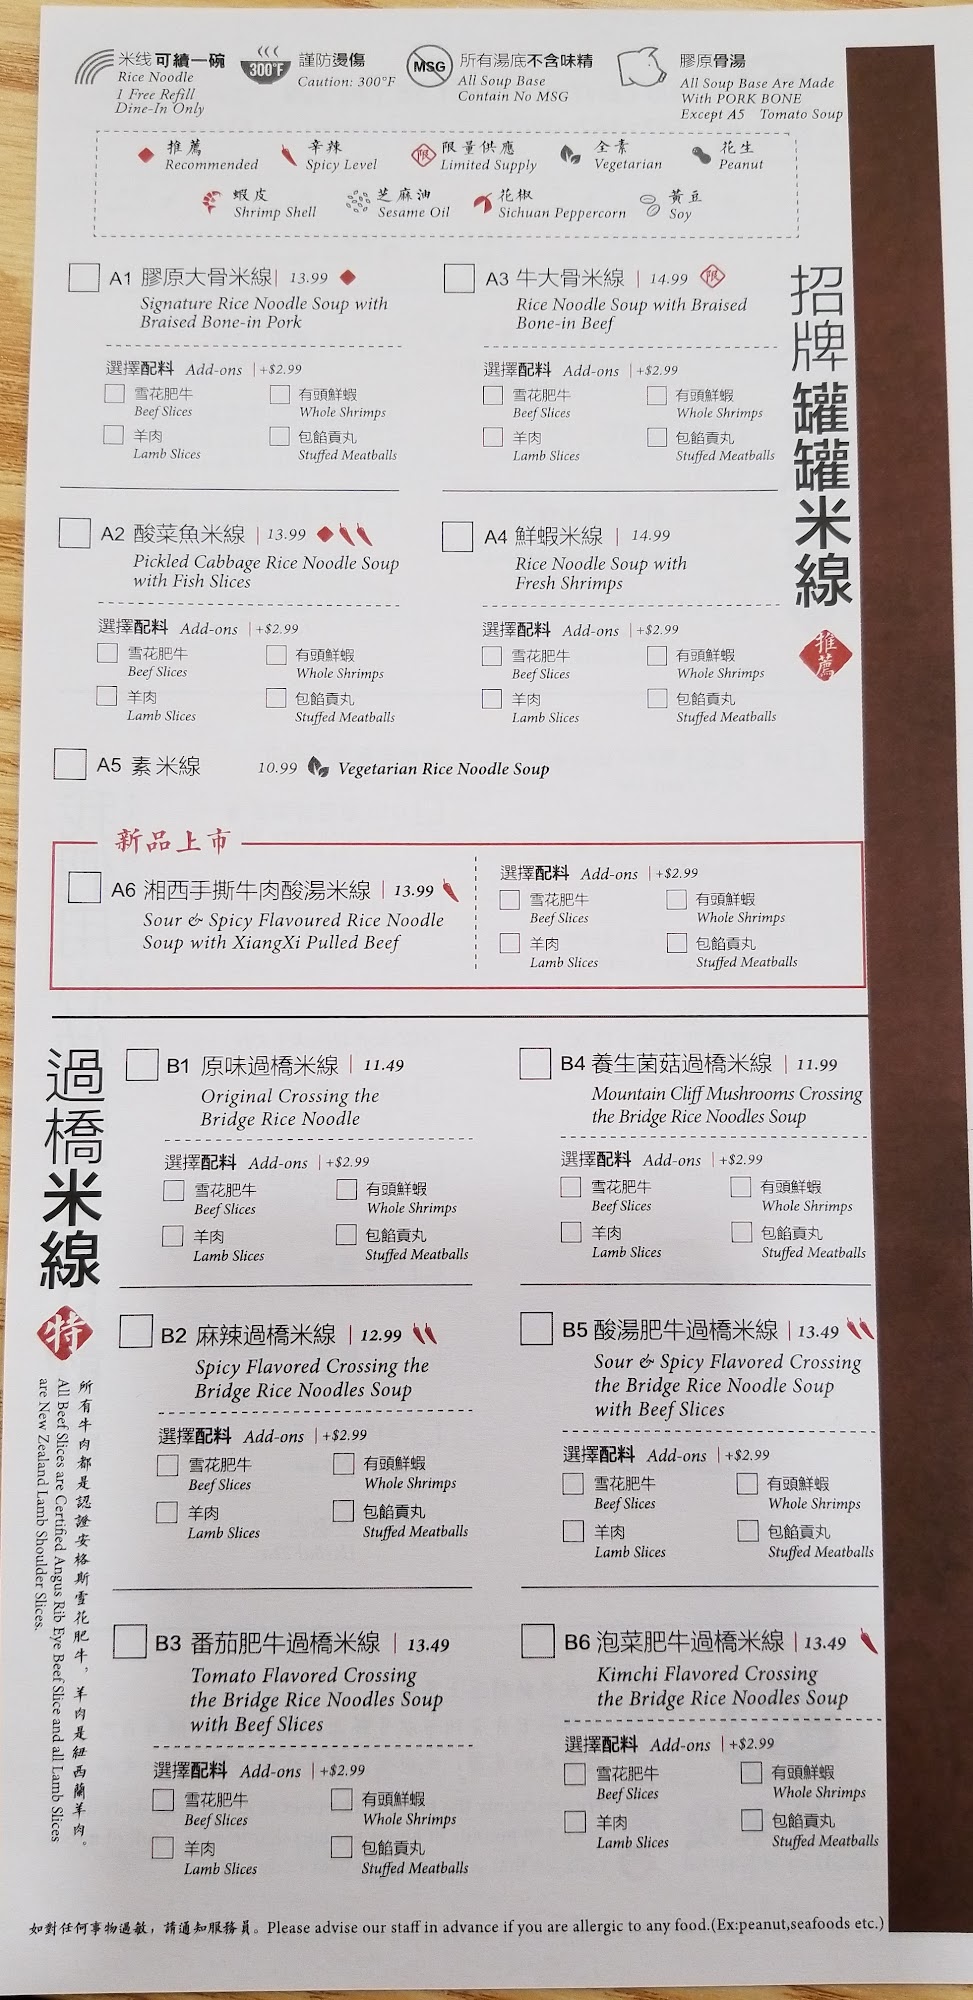 米线 可續一碗
Rice Noodle
1 Free Refill
Dine-In Only
300°F
謹防燙傷
Caution: 300°F
MSG
所有湯底不含味精
All Soup Base
Contain No MSG
膠原骨湯
All Soup Base Are Made
With PORK BONE
Except A5 Tomato Soup
推薦
Recommended
辛辣
Spicy Level
限
限量供應
Limited Supply
全素
Vegetarian
花生
Peanut
蝦皮
Shrimp Shell
芝麻油
Sesame Oil
花椒
Sichuan Peppercorn
黃豆
Soy
招牌罐罐米線
推薦
A1 膠原大骨米線 | 13.99
Signature Rice Noodle Soup with
Braised Bone-in Pork
選擇配料 Add-ons | +$2.99
雪花肥牛
Beef Slices
有頭鮮蝦
Whole Shrimps
羊肉
Lamb Slices
包餡貢丸
Stuffed Meatballs
A3 牛大骨米線 | 14.99 限
Rice Noodle Soup with Braised
Bone-in Beef
選擇配料 Add-ons | +$2.99
雪花肥牛
Beef Slices
有頭鮮蝦
Whole Shrimps
羊肉
Lamb Slices
包餡貢丸
Stuffed Meatballs
A2 酸菜魚米線 | 13.99
Pickled Cabbage Rice Noodle Soup
with Fish Slices
選擇配料 Add-ons | +$2.99
雪花肥牛
Beef Slices
有頭鮮蝦
Whole Shrimps
羊肉
Lamb Slices
包餡貢丸
Stuffed Meatballs
A4 鮮蝦米線 | 14.99
Rice Noodle Soup with
Fresh Shrimps
選擇配料 Add-ons | +$2.99
雪花肥牛
Beef Slices
有頭鮮蝦
Whole Shrimps
羊肉
Lamb Slices
包餡貢丸
Stuffed Meatballs
A5 素米線 10.99 Vegetarian Rice Noodle Soup
新品上市
A6 湘西手撕牛肉酸湯米線 | 13.99
Sour & Spicy Flavoured Rice Noodle
Soup with XiangXi Pulled Beef
選擇配料 Add-ons | +$2.99
雪花肥牛
Beef Slices
有頭鮮蝦
Whole Shrimps
羊肉
Lamb Slices
包餡貢丸
Stuffed Meatballs
過橋米線
特
所有牛肉都是認證安格斯雪花肥牛，羊肉是紐西蘭羊肉。
All Beef Slices are Certified Angus Rib Eye Beef Slice and all Lamb Slices
are New Zealand Lamb Shoulder Slices.
B1 原味過橋米線 | 11.49
Original Crossing the
Bridge Rice Noodle
選擇配料 Add-ons | +$2.99
雪花肥牛
Beef Slices
有頭鮮蝦
Whole Shrimps
羊肉
Lamb Slices
包餡貢丸
Stuffed Meatballs
B4 養生菌菇過橋米線 | 11.99
Mountain Cliff Mushrooms Crossing
the Bridge Rice Noodles Soup
選擇配料 Add-ons | +$2.99
雪花肥牛
Beef Slices
有頭鮮蝦
Whole Shrimps
羊肉
Lamb Slices
包餡貢丸
Stuffed Meatballs
B2 麻辣過橋米線 | 12.99
Spicy Flavored Crossing the
Bridge Rice Noodles Soup
選擇配料 Add-ons | +$2.99
雪花肥牛
Beef Slices
有頭鮮蝦
Whole Shrimps
羊肉
Lamb Slices
包餡貢丸
Stuffed Meatballs
B5 酸湯肥牛過橋米線 | 13.49
Sour & Spicy Flavored Crossing
the Bridge Rice Noodle Soup
with Beef Slices
選擇配料 Add-ons | +$2.99
雪花肥牛
Beef Slices
有頭鮮蝦
Whole Shrimps
羊肉
Lamb Slices
包餡貢丸
Stuffed Meatballs
B3 番茄肥牛過橋米線 | 13.49
Tomato Flavored Crossing
the Bridge Rice Noodles Soup
with Beef Slices
選擇配料 Add-ons | +$2.99
雪花肥牛
Beef Slices
有頭鮮蝦
Whole Shrimps
羊肉
Lamb Slices
包餡貢丸
Stuffed Meatballs
B6 泡菜肥牛過橋米線 | 13.49
Kimchi Flavored Crossing
the Bridge Rice Noodles Soup
選擇配料 Add-ons | +$2.99
雪花肥牛
Beef Slices
有頭鮮蝦
Whole Shrimps
羊肉
Lamb Slices
包餡貢丸
Stuffed Meatballs
如對任何事物過敏，請通知服務員。Please advise our staff in advance if you are allergic to any food.(Ex:peanut,seafoods etc.)